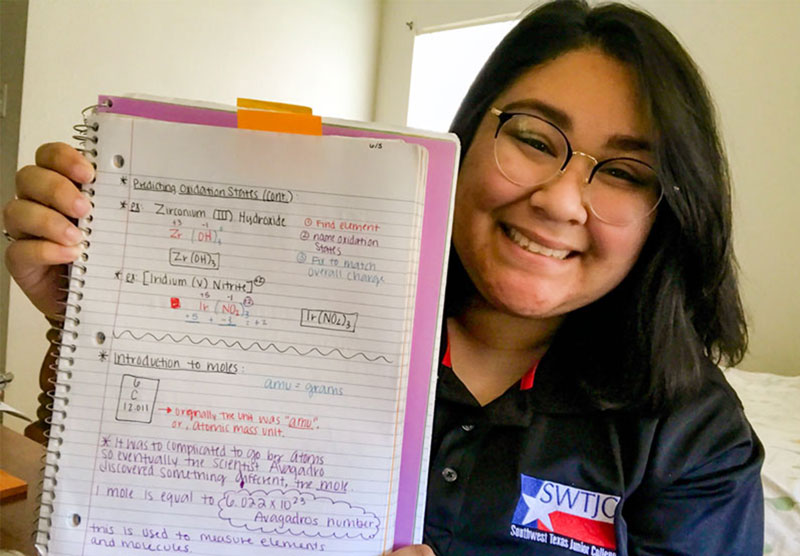 6/8
* Predicting Oxidation States (cont.):
* ex: Zirconium (III) Hydroxide
+3 -1
Zr (OH)3
Zr(OH)3
① Find element
② name oxidation
states
③ Fix to match
overall charge
* ex: [Iridium (V) Nitrite]+2
+5 -1 +2
Ir (NO2)3
+5 + -3 = +2
Ir(NO2)3
* Introduction to moles:
6
C
12.011
amu = grams
→ originally the unit was "amu",
or, atomic mass unit.
* It was to complicated to go by atoms
so eventually the scientist Avagadro
discovered something different, the mole.
1 mole is equal to 6.022 x 10^23
Avagadros number
this is used to measure elements
and molecules.
SWTJC
Southwest Texas Junior College